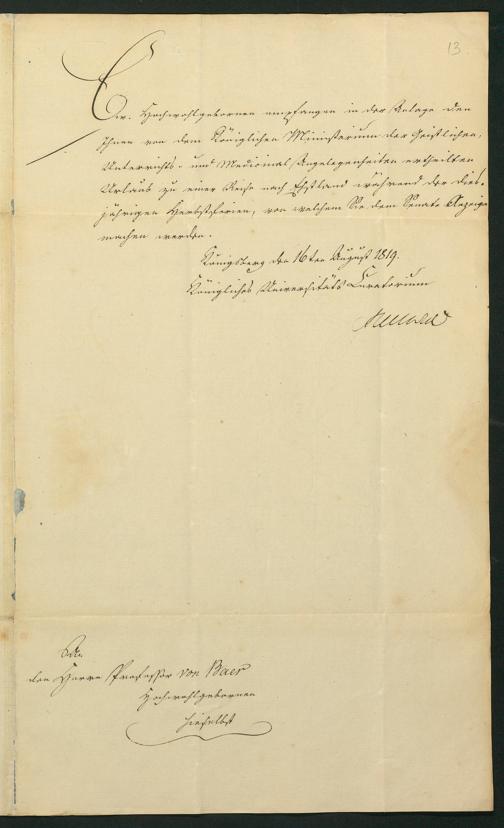 13
Ew. Hochwohlgebornen empfangen in der Anlage den
Ihnen von dem Königlichen Ministerium der Geistlichen,
Unterrichts- und Medicinal Angelegenheiten ertheilten
Urlaub zu einer Reise nach Ehstland während der dies-
jährigen Herbstferien, von welchem Sie dem Senate Anzeige
machen werden.
Königsberg den 16ten August 1819.
Königliches Universitäts Curatorium
An
den Herrn Professor von Baer
Hochwohlgebornen
hieselbst